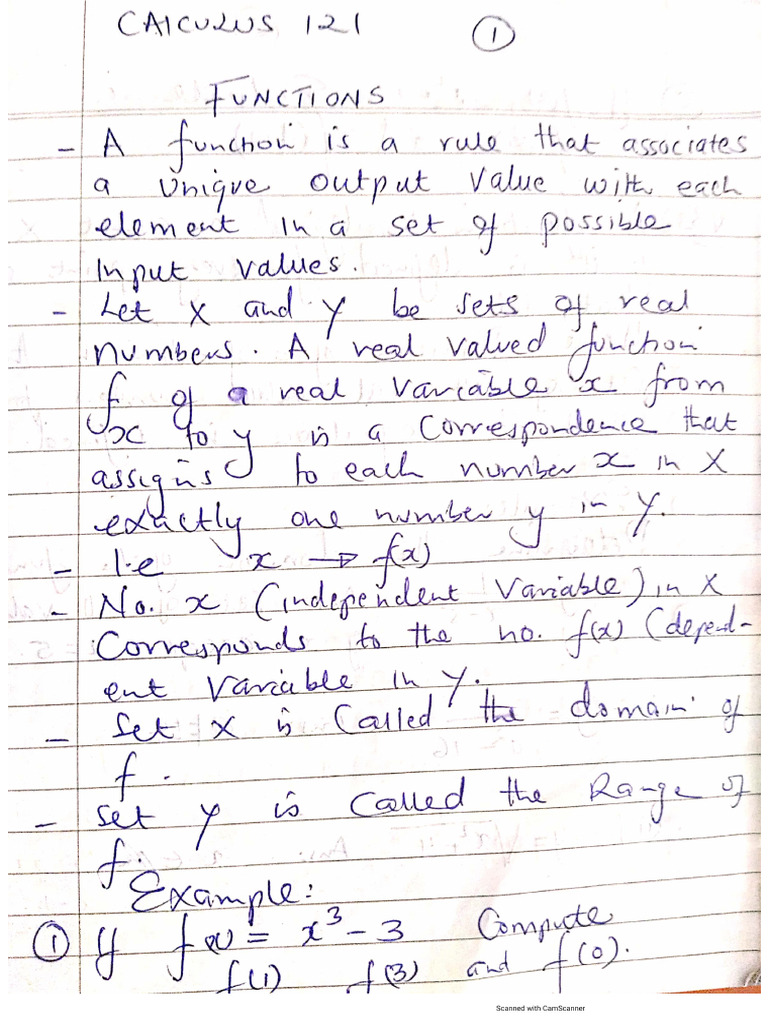 CALCULUS 121 ①
FUNCTIONS
- A function is a rule that associates
a unique output value with each
element in a set of possible
input values.
- Let X and Y be sets of real
numbers. A real valued function
f of a real variable x from
x to y is a correspondence that
assigns to each number x in X
exactly one number y in Y.
- I.e x → f(x)
- No. x (independent variable) in X
corresponds to the no. f(x) (depend-
ent variable in Y.
- Set X is called the domain of
f.
- Set Y is called the Range of
f.
Example:
① If f(x) = x³ - 3 Compute
f(1) f(3) and f(0).
Scanned with CamScanner